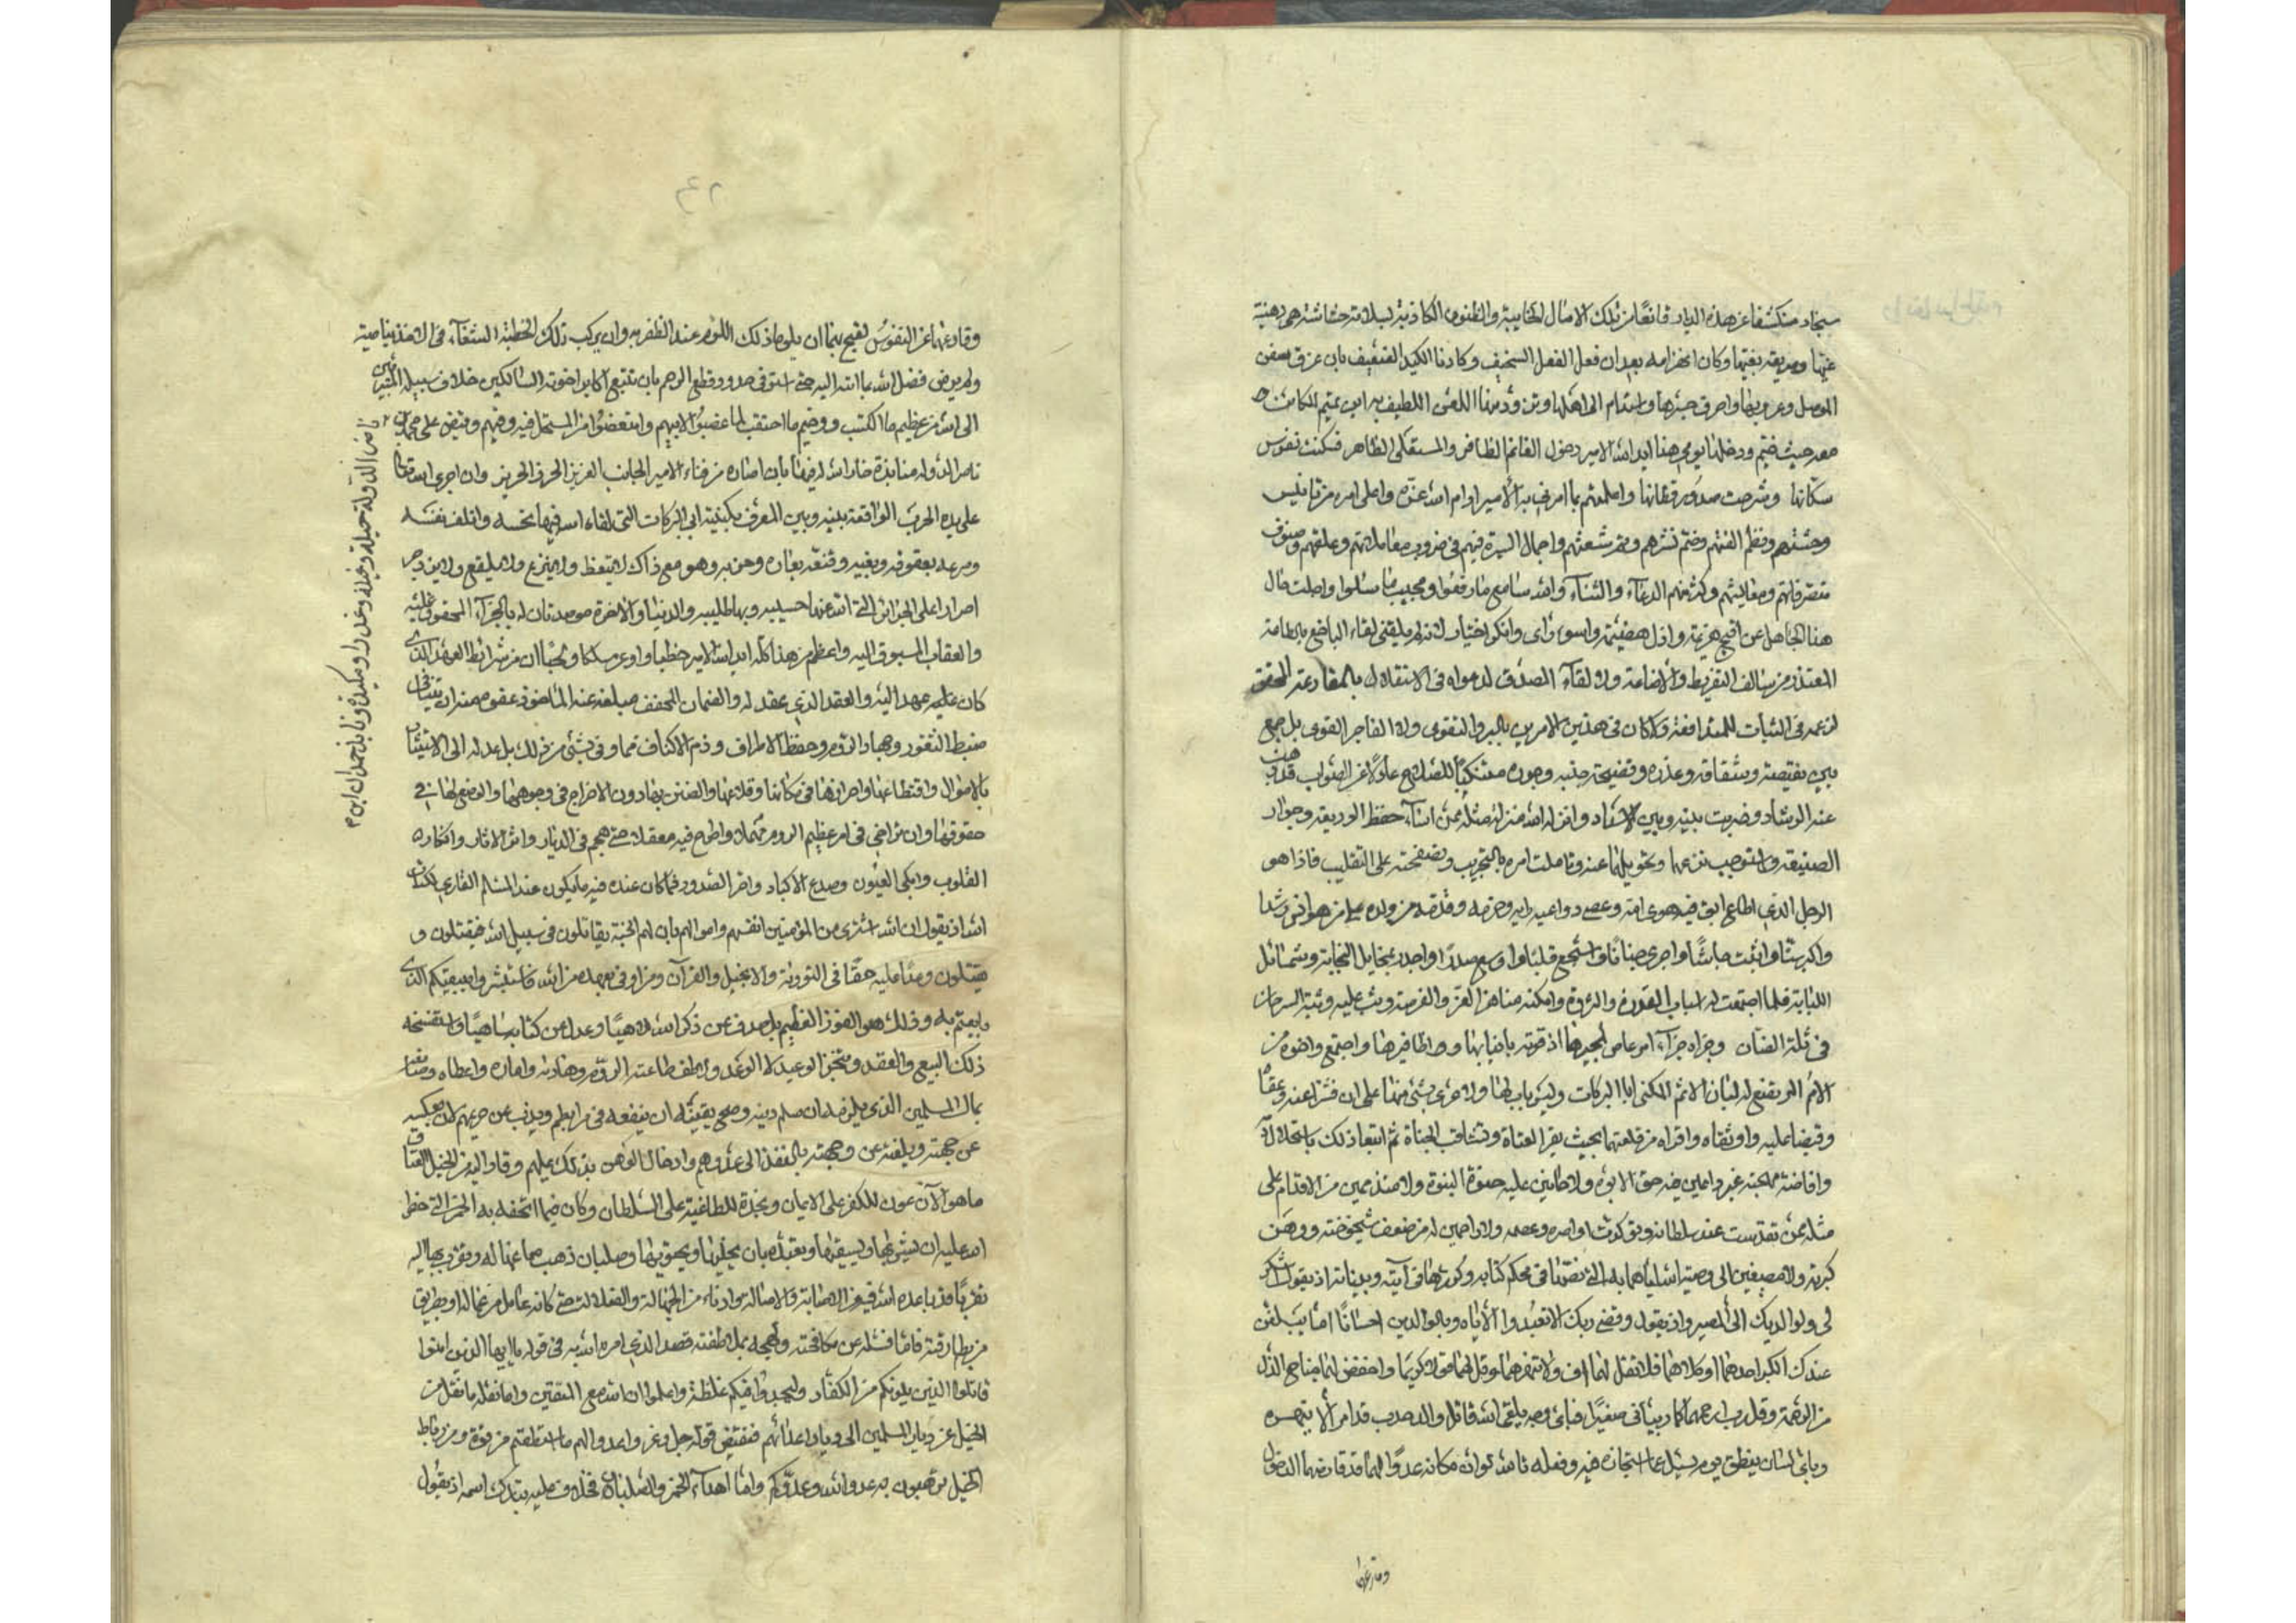 سنجار منكشفا عن هذه الديار قانعا من تلك الآمال الخايبة والظنون الكاذبة بسلامة حشاشة هي رهينة
غيها وصريعة بغيها وكان انهزامه بعد ان فعل الفعل السخيف وكادنا الكيد الضعيف بان غرق سفن
الموصل وعروبها واحرق جسرها واستذم الى اهلها وتزود منا اللعن اللطيف به اين يمم الكائن
معه حيث خيم ودخلتها يومي هذا ايد الله الامير دخول الغانم الظافر والمستعلى الظاهر فسكنت نفوس
سكانها وشرحت صدور قطانها واعلمتهم بما امرني به الأمير ادام الله عزه واعلى امره من تانيس
وحشتهم ونظم الفتهم وضم نشرهم ولم شعثهم واجمال السيرة فيهم في ضروب معاملاتهم وعلقهم وصنوف
متصرفاتهم ومعايشهم وكثر منهم الدعاء والثناء والله سامع ما رفعوا ومجيب ما سئلوا واجلت حال
هذا الجاهل عن اقبح هزيمة واذل هضيمة واسوء راى وانكر اختيار لانه لم يلقني لقاء الباخع بالطاعة
المعتذر من سالف التفريط والاضاعة ولا لقاء المصدق لدعواه في الاستقلال بالمقارعة المحقق
لزعمه في الثبات للمدافعة ولا كان في هذين الامرين بالبر والتقوى ولا الفاجر القوى بل جمع
بين نقيصة شقاقه وغدره وفضيحة جبنه وخوره متنكبا للصلاح عادلا عن الصواب قد ذهب
عنه الرشاد وضربت بينه وبين الاسداد وانزله الله منزلة مثله ممن اساء حفظ الوديعة وجوار
الصنيعة واستوجب نزعها وتحويلها عنه وتاملت امره بالتجريب وتصفحته على التقليب فاذا هو
الرجل الذي اطاع ابوه فيه هوى امه وعصى دواعي رايه وحزمه وقدمه من ولده على من هو انس رشدا
واكبر سنا واثبت جاشا واجرى جنانا واشجع قلبا واوسع صدرا واجدر بمخايل النجابة وشمائل
اللبابة فلما اجتمعت له اسباب القدرة والثروة وامكنه مناهز العز والفرصة وثب عليه وثبة السرحان
في ثلة الضان وجزاه جزاء ام عامر لمجيرها اذ فرته بانيابها واظافيرها واجتمع واخوه من
الام المرتضع له لبان الاثم المكنى ابا البركات وليس باب لها ولا حرى بشئ منها على ان نشزا عنه وعقاه
وقبضا عليه واوثقاه واقراه من قلعتهما بحيث يقر العتاة وتعاقب الجناة ثم اتبعا ذلك باستحلال
وافاضة مهجته غير راعين فيه حق الابوة ولا حانين عليه حنو البنوة ولا متذممين من الاقدام على
مثله ممن تقدمت عند سلطانه وتوكدت اواصره وعصمه ولا راحمين له من ضعف شيخوخته ووهن
كبرته ولا مصغين الى وصية الله اياهما به التي نصها في محكم كتابه وكررها في آيته وبيناته اذ يقول اشكر
لي ولوالديك الى المصير واذ يقول وقضى ربك الا تعبدوا الا اياه وبالوالدين احسانا اما يبلغن
عندك الكبر احدهما او كلاهما فلا تقل لهما اف ولا تنهرهما وقل لهما قولا كريما واخفض لهما جناح الذل
من الرحمة وقل رب ارحمهما كما ربياني صغيرا فباى وجه يلقى الله قاتل والد حدب قد امر ألا ينهره
وباى لسان ينطق يوم يسئل عما استجازه فيه وفعله تالله لو ان مكانه عدوا لهما قد قارضهما الذحول
وقارعها
وقارعهما عن النفوس لقبح بهما ان يلوما ذلك اللوم عند الظفر به وان يركبا تلك الخطة الشنعاء في الاخذ بناصيته
ولم يرض فضل الله بما اتاه اليه حتى استوفى حدود قطع الرحم بان تتبع اكابر اخوته السالكين خلاف سبيله المتبرئين
الى الله من عظيم ما اكتسب ووخيم ما احتقب لما غضبوا لابيهم وامتعضوا من المستحل فيه وفيهم وقبض على محمد بن
ناصر الدولة حيلة وغيلة وغدرا ومكيدة ونابذ حمدان ابن
ناصر الدولة منابذة خار الله له فيها بان اصاره من فناء الامير الجانب العزيز الحرز الحريز وان اجرى الله تعالى
على يده الحرب الواقعة بينه وبين المعروف بكنيته ابي البركات التي لقاه الله فيها نحسه واتلف نفسه
وصرعه بعقوقه وبغيه وقنعه بعاره وخزيه وهو مع ذاك لا يتعظ ولا ينزع ولا يقلع ولا يزدجر
اصرارا على الجرائر التي الله عنها حسيبه وبها طليبه والدنيا والاخرة مرصدتان له بالجزاء المحقوق عليه
والعقاب المسبوق اليه واعظم من هذا كله ايد الله الامير خطبا واوعر مسلكا ولحبا ان من شرائط العهد الذى
كان عليه عهد اليه والعقد الذي عقد له والضمان المخفف مبلغه عنه المأخوذ عفوه منه ان يتناهى
ضبط الثغور وجهاد الروم وحفظ الاطراف ورم الاكناف فما وفى بشئ من ذلك بل عدل الى الاستيثار
بالاموال واقتطاعها واحرازها في مكامنها وقلاعها والضن بها دون الاخراج في وجوهها والوضع لها في
حقوقها وان تراخى في امر عظيم الروم مهملا واطرح فيه مغفلا حتى هجم في الديار واثر الاثار وانكاره
القلوب وابكى العيون وصدع الاكباد واحر الصدور فما كان عنده فيه ما يكون عند المسلم القارئ لكتاب
الله اذ يقول ان الله اشترى من المؤمنين انفسهم واموالهم بان لهم الجنة يقاتلون في سبيل الله فيقتلون و
يقتلون وعدا عليه حقا في التورية والانجيل والقرآن ومن اوفى بعهده من الله فاستبشروا ببيعكم الذى
بايعتم به وذلك هو الفوز العظيم بل صدف عن ذكر الله لاهيا وعدل عن كتابه ساهيا واستفسخه
ذلك البيع والعقد وتنجز الوعيد لا الوعد ولطف طاغية الروم وهاداه وماره واعطاه وصانعه
بمال المسلمين الذي يلزمه ان سلم دينه وصح يقينه ان ينفقه في مرابطهم ويذب عن حريمهم لا ان يعكسه
عن جهته ويلفته عن وجهته بالنقل الى عدوهم وادخال الوهن بذلك عليهم وقاد اليه من الخيل العتاق
ما هو الآن عون للكفر على الايمان ونجدة للطاغية على السلطان وكان فيما اتحفه به الخمر التي حظر
الله عليه ان يشربها ويسقيها وتعبده بان يجتنبها ويجتويها وصلبان ذهب صاغها له وتقرب بها اليه
تقربا قد باعده الله فيه عن الاصابة والاصالة وادناه من الجهالة والضلالة حتى كانه عامل من عماله او بطريق
من بطارقته فاما فشله عن مكافحته ولهجه بملاطفته فضد الذي امره الله به في قوله يا ايها الذين امنوا
قاتلوا الذين يلونكم من الكفار وليجدوا فيكم غلظة واعلموا ان الله مع المتقين واما نقله ما نقل من
الخيل عن ديار المسلمين الى ديار اعدائهم فنقيض قوله جل وعز واعدوا لهم ما استطعتم من قوة ومن رباط
الخيل ترهبون به عدو الله وعدوكم واما اهداء الخمر والصلبان فخلاف عليه تبارك اسمه اذ يقول